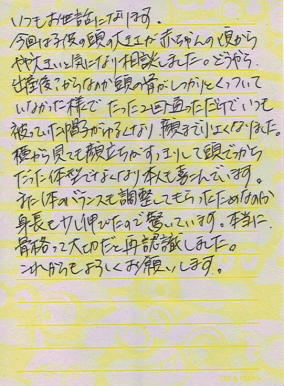 いつもお世話になります。
今回は子供の頭の大きさが赤ちゃんの頃から
やや大きいと気になり相談しました。どうやら
出産後?からなのか頭の骨がしっかりとくっついて
いなかった様で たった2回通っただけで いつも
被っていた帽子がゆるくなり 顔まで小さくなりました。
横から見ても顔立ちがすっきりして頭でっかち
だった体型でなくなり本人も喜んでいます。
また体のバランスも調整してもらったためなのか
身長も少し伸びたので驚いています。本当に
骨格って大切だと再認識しました。
これからもよろしくお願いします。